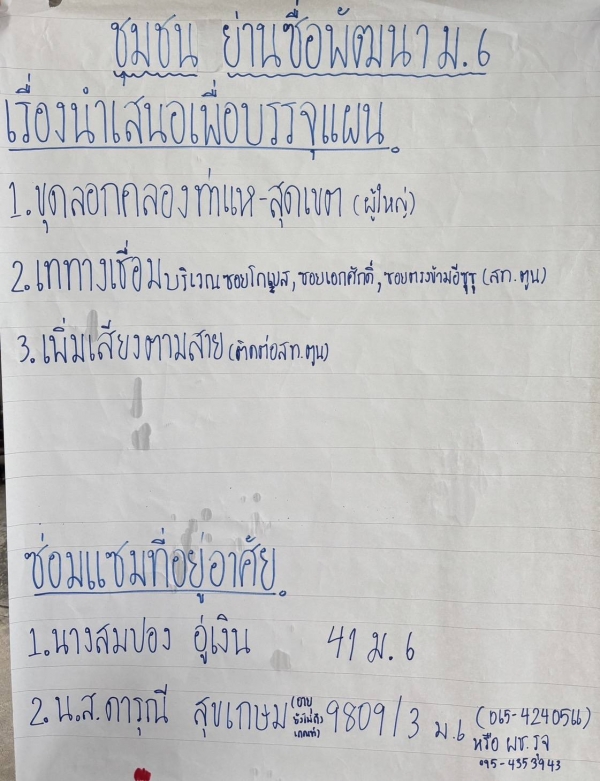 ชุมชน ย่านซื่อพัฒนา ม.6
เรื่องนำเสนอเพื่อบรรจุแผน
1. ขุดลอกคลองท่าแห-สุดเขต (ผู้ใหญ่)
2. เททางเชื่อมบริเวณซอยโกเบส, ซอยเอกศักดิ์, ซอยตรงข้ามอีซูซุ (สท.ตูน)
3. เพิ่มเสียงตามสาย (ติดต่อสท.ตูน)
ซ่อมแซมที่อยู่อาศัย
1. นางสมปอง อู่เงิน 41 ม.6
2. น.ส.ดารุณี สุขเกษม (อายุยังไม่ถึงเกณฑ์) 9809/3 ม.6 (065-4240566)
หรือ ผช.รุจ
095-4353943